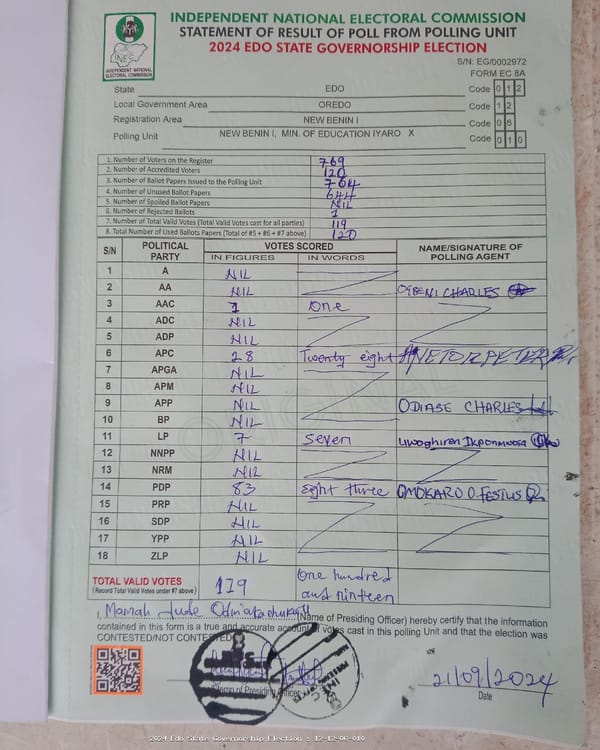 INDEPENDENT NATIONAL ELECTORAL COMMISSION
STATEMENT OF RESULT OF POLL FROM POLLING UNIT
2024 EDO STATE GOVERNORSHIP ELECTION
INDEPENDENT NATIONAL
ELECTORAL COMMISSION
S/N: EG/0002972
FORM EC 8A
State EDO Code 0 1 2
Local Government Area OREDO Code 1 2
Registration Area NEW BENIN I Code 0 6
Polling Unit NEW BENIN I, MIN. OF EDUCATION IYARO X Code 0 1 0
1. Number of Voters on the Register 769
2. Number of Accredited Voters 120
3. Number of Ballot Papers Issued to the Polling Unit 764
4. Number of Unused Ballot Papers 644
5. Number of Spoiled Ballot Papers NIL
6. Number of Rejected Ballots 1
7. Number of Total Valid Votes (Total Valid Votes cast for all parties) 119
8. Total Number of Used Ballots Papers (Total of #5 + #6 + #7 above) 120
S/N POLITICAL PARTY VOTES SCORED NAME/SIGNATURE OF POLLING AGENT
IN FIGURES IN WORDS
1 A NIL
2 AA NIL CHARLES
3 AAC 1 one
4 ADC NIL
5 ADP NIL
6 APC 28 Twenty eight PETER
7 APGA NIL
8 APM NIL
9 APP NIL ODIASE CHARLES
10 BP NIL
11 LP 7 seven
12 NNPP NIL
13 NRM NIL
14 PDP 83 eight three OMOKARO O. FESTUS
15 PRP NIL
16 SDP NIL
17 YPP NIL
18 ZLP NIL
TOTAL VALID VOTES 119 one hundred
(Record Total Valid Votes under #7 above) and ninteen
I, Mamah Jude (Name of Presiding Officer) hereby certify that the information
contained in this form is a true and accurate account of votes cast in this polling Unit and that the election was
CONTESTED/NOT CONTESTED
21/09/2024
Date
2024 Edo State Governorship Election - 12-12-06-010